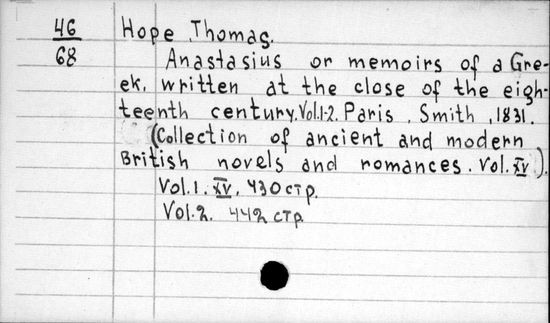 46
68
Hope Thomas.
Anastasius or memoirs of a Gre-
ek, written at the close of the eigh-
teenth century. Vol.1-2. Paris, Smith, 1831.
(Collection of ancient and modern
British novels and romances. Vol. XV).
Vol. 1. XV, 430 стр.
Vol. 2. 442 стр.